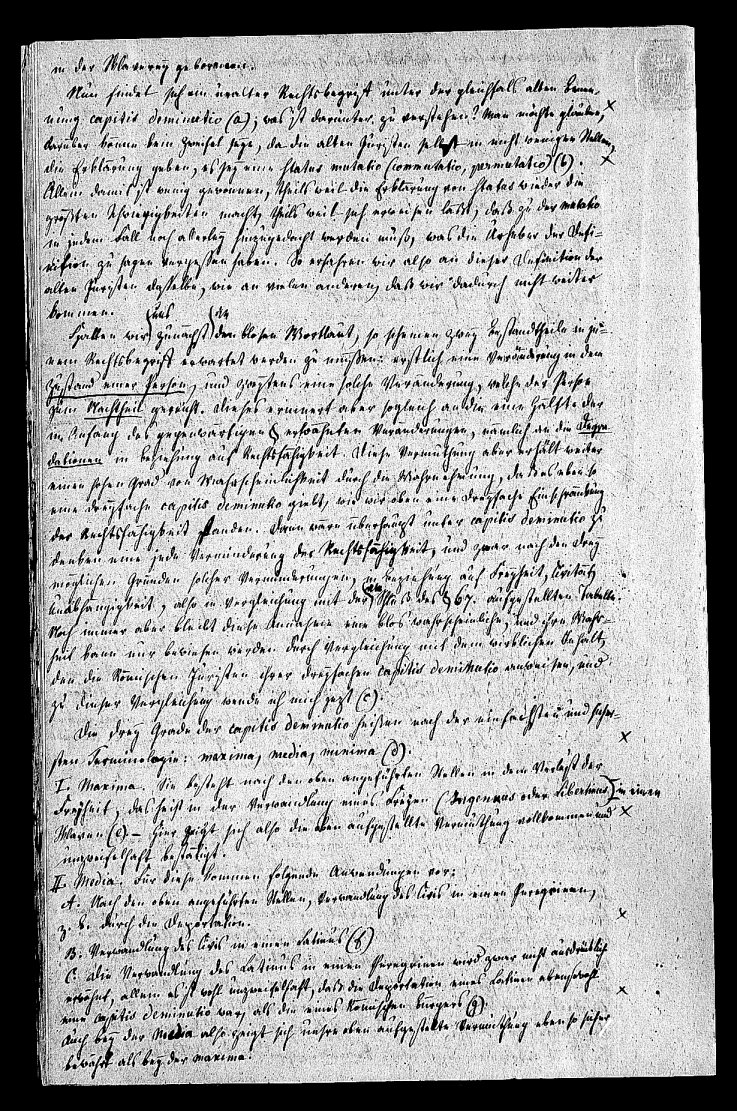 in der Sklaverey geborenen.
Nun findet sich ein uralter Rechtsbegriff unter der gleichfalls alten Benen-
nung capitis deminutio (a); was ist darunter zu verstehen? Man möchte glauben,
darüber könne kein Zweifel seyn, da die alten Juristen selbst in nicht wenigen Stellen,
die Erklärung geben, es sey eine status mutatio (commutatio, permutatio) (b).
Allein damit ist wenig gewonnen, theils weil die Erklärung von status wieder die
größten Schwierigkeiten macht, theils weil sich erweisen läßt, daß zu der mutatio
in jedem Fall noch allerley hinzugedacht werden muß, was die Urheber der Defi-
nition zu sagen vergessen haben. So erfahren wir also an dieser Definition der
alten Juristen dasselbe, wie an vielen anderen, daß wir dadurch nicht weiter
kommen.
Halten wir uns zunächst an den blosen Wortlaut, so scheinen zwey Bestandtheile in je-
nem Rechtsbegriff erwartet werden zu müssen: erstlich eine Veränderung in dem
Zustand einer Person, und zweytens eine solche Veränderung, welche der Person
zum Nachtheil gereicht. Dieses erinnert aber sogleich an die eine Hälfte der
im Anfang des gegenwärtigen § erwähnten Veränderungen, nämlich an die Degra-
dationen in Beziehung auf Rechtsfähigkeit. Diese Vermuthung aber erhält weiter
einen hohen Grad von Wahrscheinlichkeit durch die Wahrnehmung, daß es eben so
eine dreyfache capitis deminutio giebt, wie wir oben eine dreyfache Einschränkung
der Rechtsfähigkeit fanden. Dann wäre überhaupt unter capitis deminutio zu
denken eine jede Verminderung der Rechtsfähigkeit, und zwar nach den drey
möglichen Gründen solcher Verminderungen, in Beziehung auf Freyheit, Civität,
Unabhängigkeit, also in Vergleichung mit der am Schluß des § 67. aufgestellten Tabelle.
Noch immer aber bleibt diese Annahme eine blos wahrscheinliche, und ihre Wahr-
heit kann nur bewiesen werden durch Vergleichung mit dem wirklichen Inhalt,
den die Römischen Juristen ihrer dreyfachen capitis deminutio anweisen, und
zu dieser Vergleichung wende ich mich jezt (c).
Die drey Grade der capitis deminutio heißen nach der einfachsten und sicher-
sten Terminologie: maxima, media, minima (d).
I. Maxima. Sie besteht nach den oben angeführten Stellen in dem Verlust der
Freyheit, das heißt in der Verwandlung eines Freyen (Ingenuus oder Libertinus) in einen
Sklaven (e) – Hier zeigt sich also die oben aufgestellte Vermuthung vollkommen und
unzweifelhaft bestätigt.
II. Media. Für diese kommen folgende Anwendungen vor:
A. Nach den oben angeführten Stellen, Verwandlung des Civis in einen Peregrinen,
z. B. durch die Deportation.
B. Verwandlung des Civis in einen Latinus (f)
C. Die Verwandlung des Latinus in einen Peregrinen wird zwar nicht ausdrücklich
erwähnt, allein es ist wohl unzweifelhaft, daß die Deportation eines Latinen ebensowohl
eine capitis deminutio war, als die eines Römischen Bürgers (g).
Auch bey der Media also zeigt sich unsre oben aufgestellte Vermuthung eben so sicher
bewährt als bey der maxima.